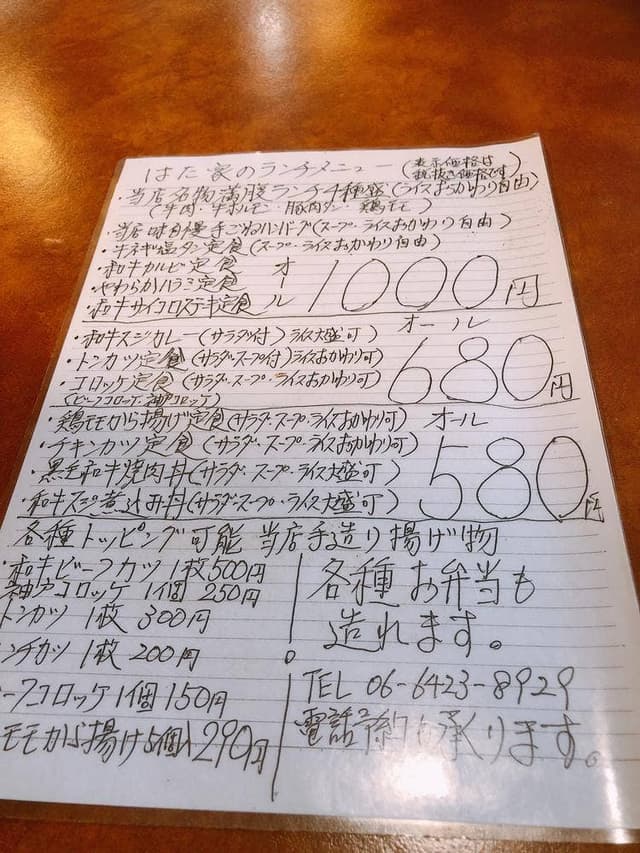 はた家のランチメニュー (表示価格は税抜き価格です)
・当店名物満腹ランチ4種盛(ライスおかわり自由)
(牛肉・牛ホルモン・豚肉タン・鶏モモ)
・当店味自慢手ごねハンバーグ(スープ・ライスおかわり自由)
・牛ネギ塩タン定食(スープ・ライスおかわり自由)
・和牛カルビ定食
・やわらかハラミ定食
・和牛サイコロステーキ定食
オール 1000円
・和牛スジカレー(サラダ付)ライス大盛可
・トンカツ定食(サラダ・スープ付)ライスおかわり可)
・コロッケ定食(サラダ・スープ・ライスおかわり可)
(ビーフコロッケ・神戸コロッケ)
オール 680円
・鶏モモから揚げ定食(サラダ・スープ・ライスおかわり可)
・チキンカツ定食(サラダ・スープ・ライスおかわり可)
・黒毛和牛焼肉丼(サラダ・スープ・ライス大盛可)
・和牛スジ煮込み丼(サラダ・スープ・ライス大盛可)
オール 580円
各種トッピング可能 当店手造り揚げ物
・和牛ビーフカツ 1枚500円
神戸コロッケ 1個 250円
トンカツ 1枚 300円
ンチカツ 1枚 200円
ーフコロッケ 1個 150円
モモから揚げ5個入290円
各種お弁当も
造れます。
TEL 06-6423-8929
電話予約も承ります。